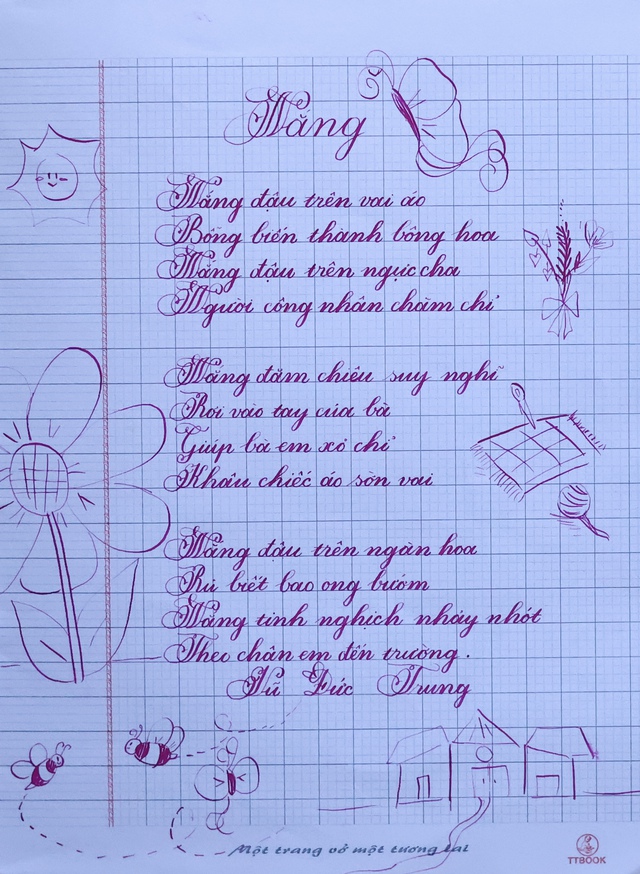 Nắng
Nắng đậu trên vai áo
Bỗng biến thành bông hoa
Nắng đậu trên ngực cha
Người công nhân chăm chỉ
Nắng đăm chiêu suy nghĩ
Rơi vào tay của bà
Giúp bà em xỏ chỉ
Khâu chiếc áo sờn vai
Nắng đậu trên ngàn hoa
Rủ biết bao ong bướm
Nắng tinh nghịch nhảy nhót
Theo chân em đến trường.
Vũ Đức Trung
Một trang vở một tương lai
TTBOOK